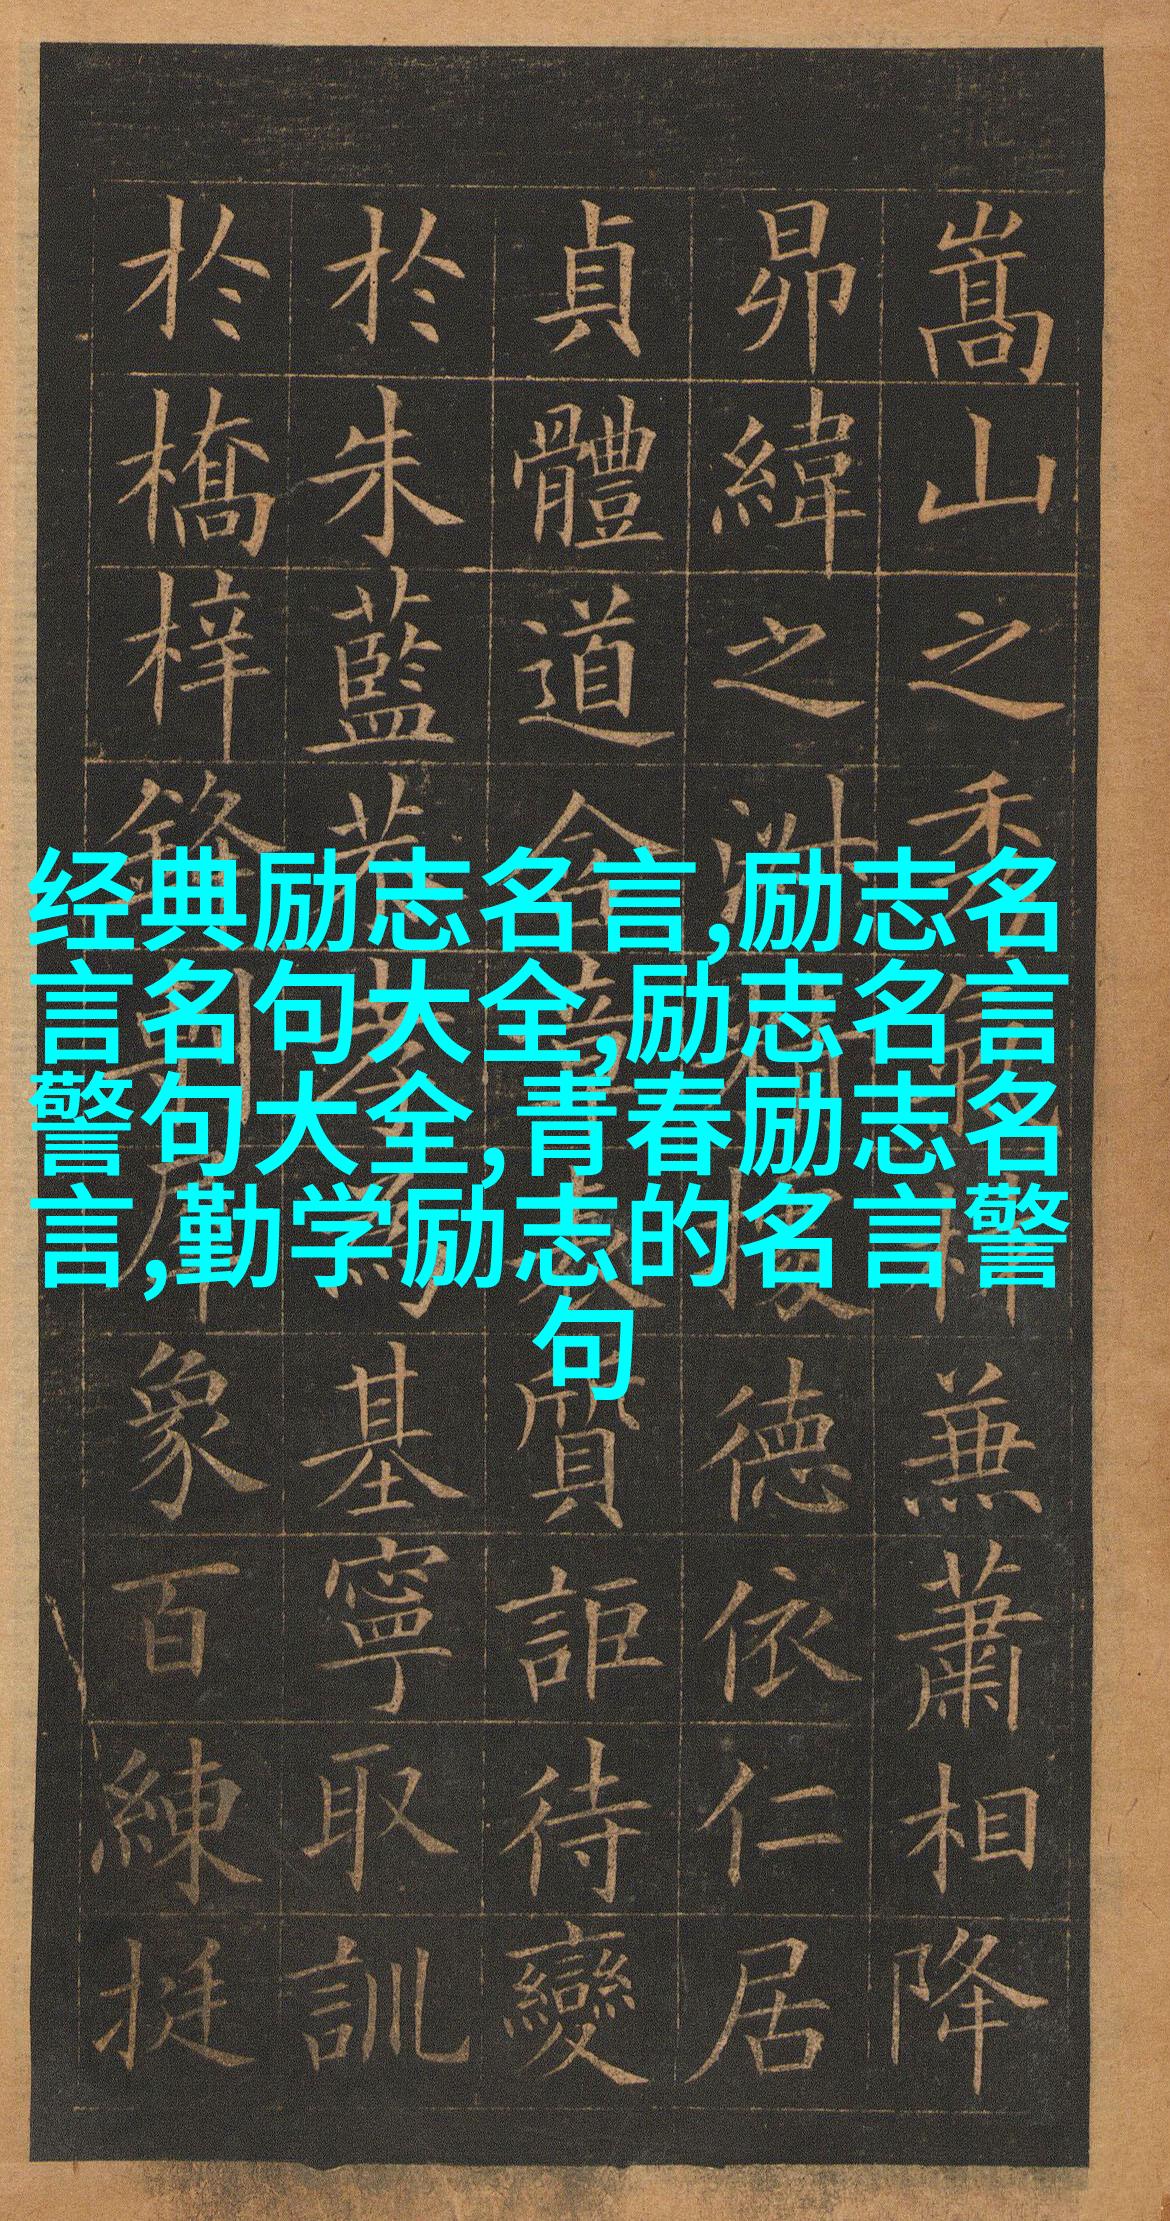 嵩山之秀兼蕭相降
昴緯之德依仁居
貞體道含章表質詎待變
於朱藍若為基寧取訓
於橋梓象百練挺
经典励志名言,励志名
言名句大全,励志名言
警句大全,青春励志名
言,勤学励志的名言警
句